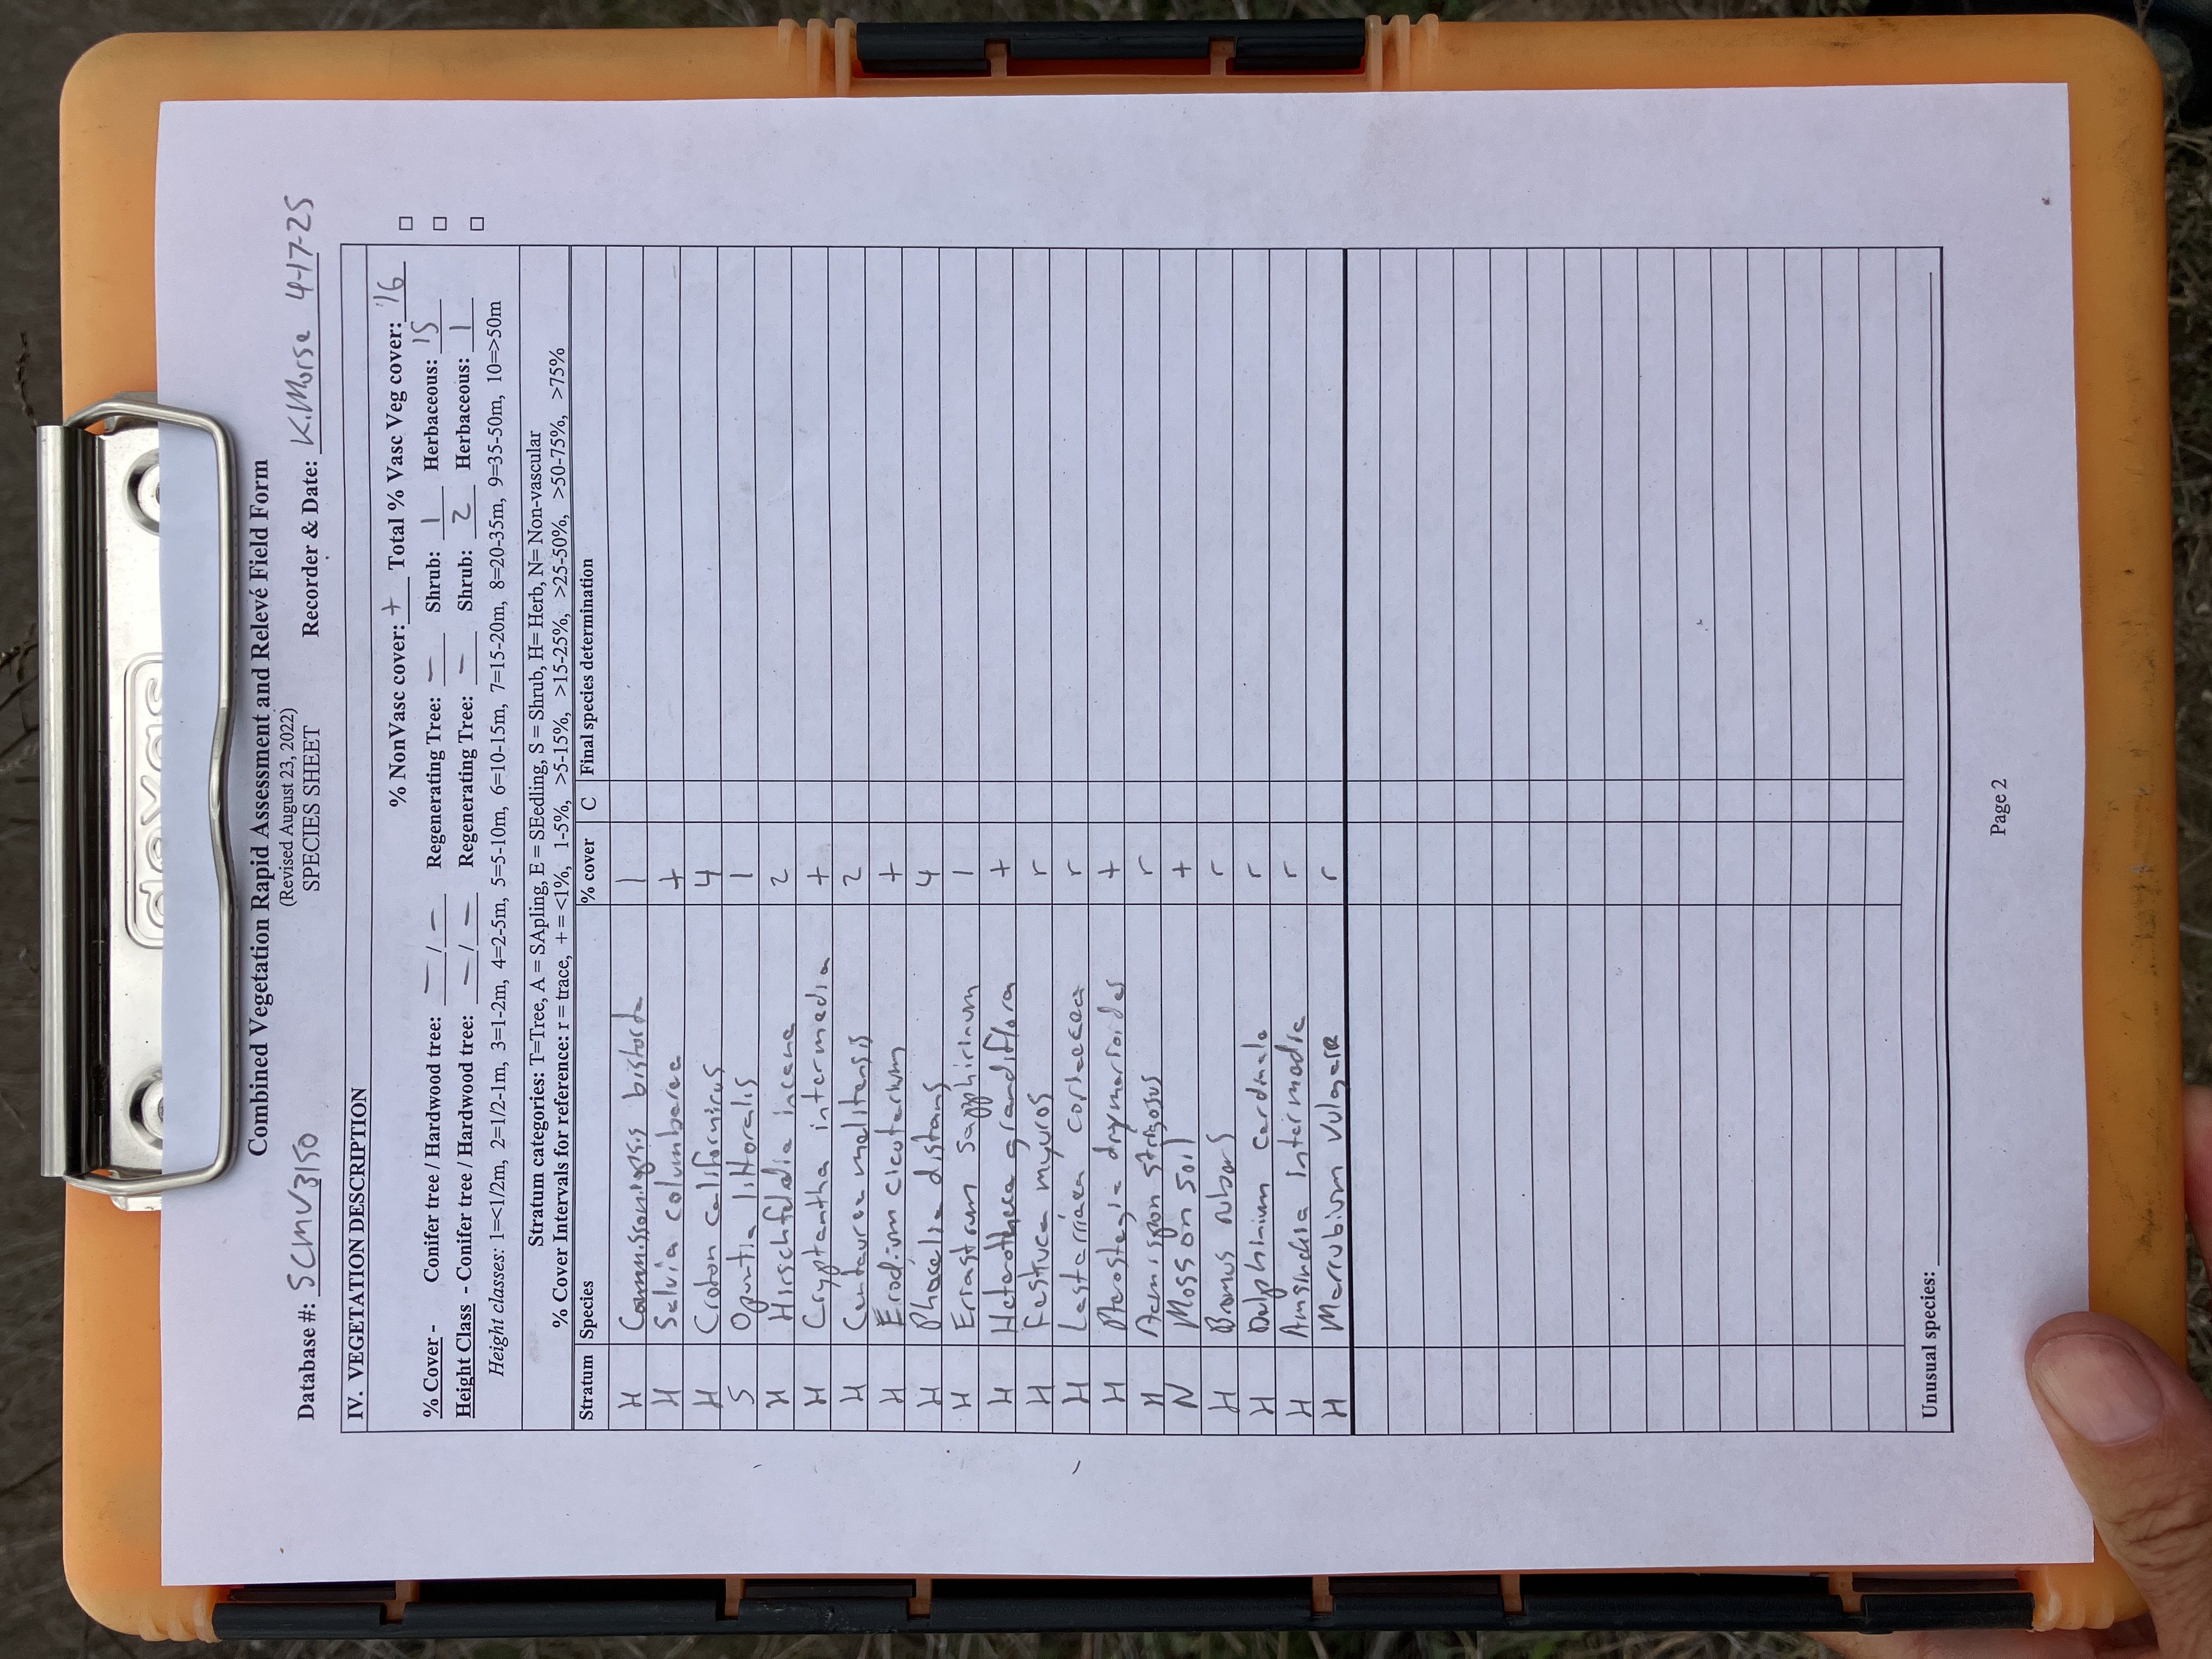 davas
Combined Vegetation Rapid Assessment and Relevé Field Form
(Revised August 23, 2022)
SPECIES SHEET
Database #: SCMV3150 Recorder & Date: K.Morse 4-17-25
IV. VEGETATION DESCRIPTION
% NonVasc cover: + Total % Vasc Veg cover: 16
% Cover - Conifer tree / Hardwood tree: - / - Regenerating Tree: - Shrub: 1 Herbaceous: 15
Height Class - Conifer tree / Hardwood tree: - / - Regenerating Tree: - Shrub: 2 Herbaceous: 1
Height classes: 1=<1/2m, 2=1/2-1m, 3=1-2m, 4=2-5m, 5=5-10m, 6=10-15m, 7=15-20m, 8=20-35m, 9=35-50m, 10=>50m
Stratum categories: T=Tree, A = SApling, E = SEedling, S = Shrub, H= Herb, N= Non-vascular
% Cover Intervals for reference: r = trace, + = <1%, 1-5%, >5-15%, >15-25%, >25-50%, >50-75%, >75%
Stratum Species % cover C Final species determination
H Cammissoniopsis bistorta 1
H Salvia columbarea +
H Croton californicus 4
S Opuntia littoralis 1
H Hirschfeldia incana 2
H Cryptantha intermedia +
H Centaurea melitensis 2
H Erodium cicutarium +
H Phacelia distans 4
H Eriastrum sapphirinum 1
H Heterotheca grandiflora +
H Festuca myuros r
H Lastarriaea coriacea r
H Pterostegia drymarioides +
H Acmispon strigosus r
N Moss on soil +
H Bromus rubens r
H Delphinium cardinale r
H Amsinckia intermedia r
H Marrubium vulgare r
Unusual species:
Page 2